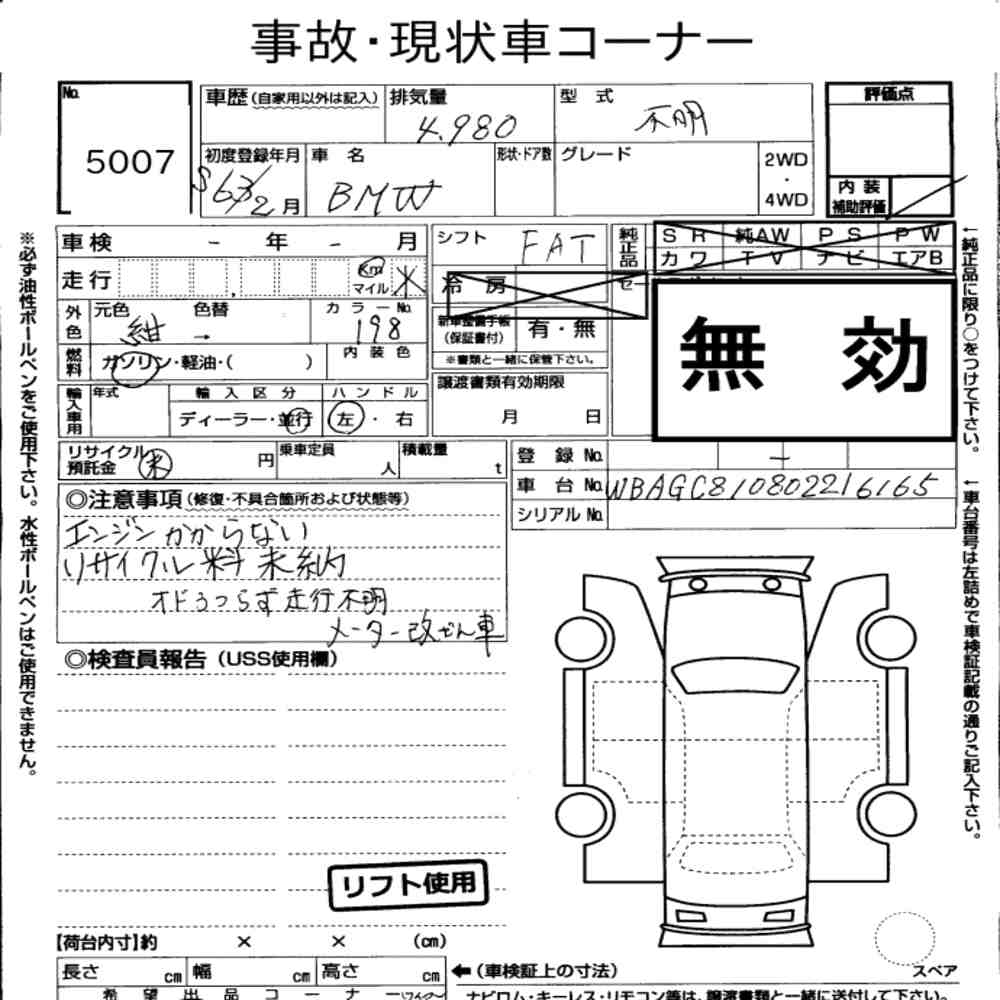 事故・現状車コーナー
No.
5007
車歴(自家用以外は記入)
排気量
4.980
型 式
不明
評価点
初度登録年月
S63/2月
車 名
BMW
形状・ドア数
グレード
2WD
・
4WD
内装
補助評価
車検 - 年 - 月
シフト
FAT
純正品
SR 純AW PS PW
カワ TV ナビ エアB
走行
Km
マイル
冷 房
セー
無 効
外色
元色
紺
色替
→
カラーNo.
198
新車整備手帳
(保証書付)
有・無
※書類と一緒に保管下さい。
燃料
ガソリン・軽油・( )
内装色
譲渡書類有効期限
月 日
輸入車用
年式
輸入区分
ディーラー・並行
ハンドル
左・右
リサイクル
預託金
未
円
乗車定員
人
積載量
t
登 録 No.
-
車 台 No.
WBAGC810802216165
シリアル No.
◎注意事項(修復・不具合箇所および状態等)
エンジンかからない
リサイクル料未納
オドうつらず走行不明
メーター改ざん車
◎検査員報告(USS使用欄)
リフト使用
【荷台内寸】約 × × (cm)
長さ cm 幅 cm 高さ cm
←(車検証上の寸法)
スペア
希望出品コーナー
ナビロム・キーレス・リモコン等は、譲渡書類と一緒に送付して下さい。
※必ず油性ボールペンをご使用下さい。水性ボールペンはご使用できません。
←純正品に限り○をつけて下さい。
←車台番号は左詰めで車検証記載の通りご記入下さい。